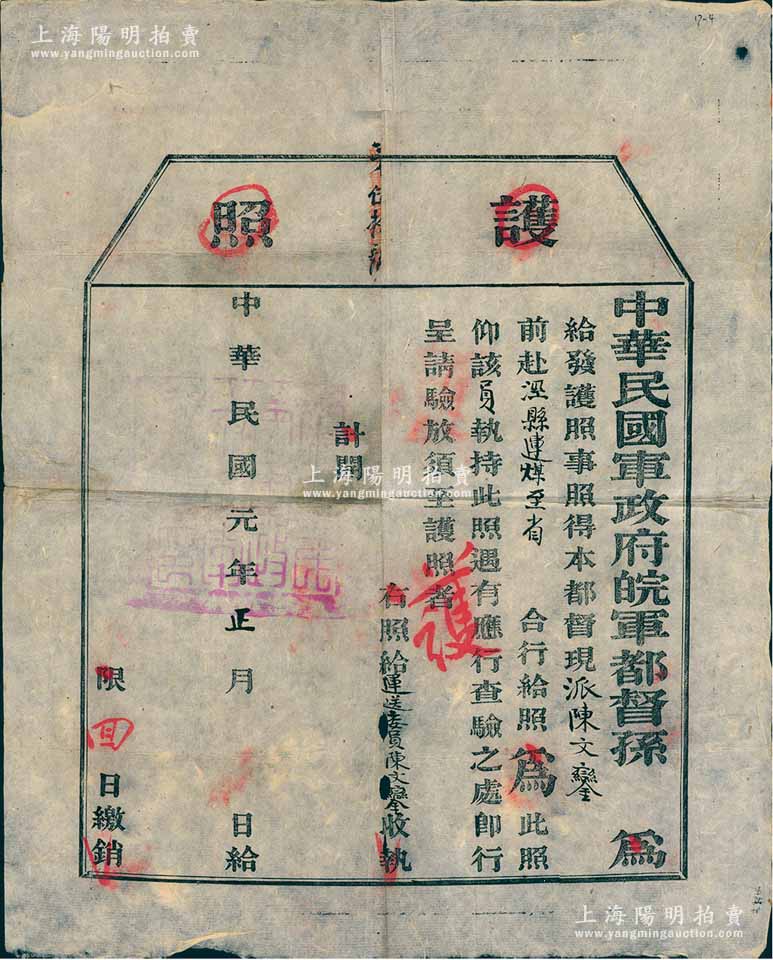 上海陽明拍賣
www.yangmingauction.com
17-4
護照
中華民國軍政府皖軍都督孫 爲
給發護照事照得本都督現派陳文鑾
前赴涇縣運煤至省 合行給照爲此照
仰該員執持此照遇有應行查驗之處卽行
呈請驗放須至護照者
護
計開
右照給運送委員陳文鑾收執
中華民國元年正月 日給
限 回 日繳銷
上海陽明拍賣
www.yangmingauction.com
上海陽明拍賣
www.yangmingauction.com